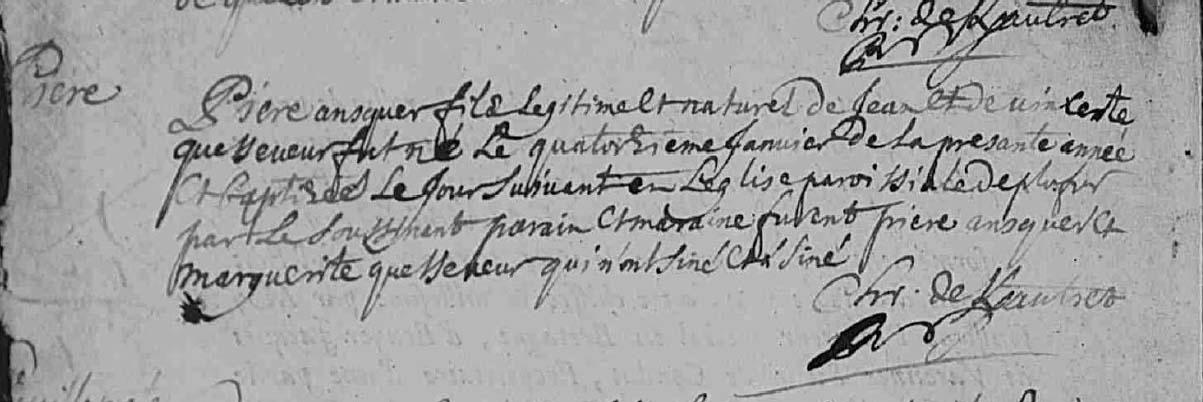 Chr: de Kautret
Piere
Piere ansquer fils legitime et naturel de Jean et de vincente
quesseveur fut né Le quatorzième Janvier de La presante année
Et baptizés Le Jour suivant en Leglise paroissiale de plofur
par Le soussinant parain Et maraine furent piere ansquer Et
marguerite quesseveur qui n'ont siné Et a siné
Chr. de Kautret